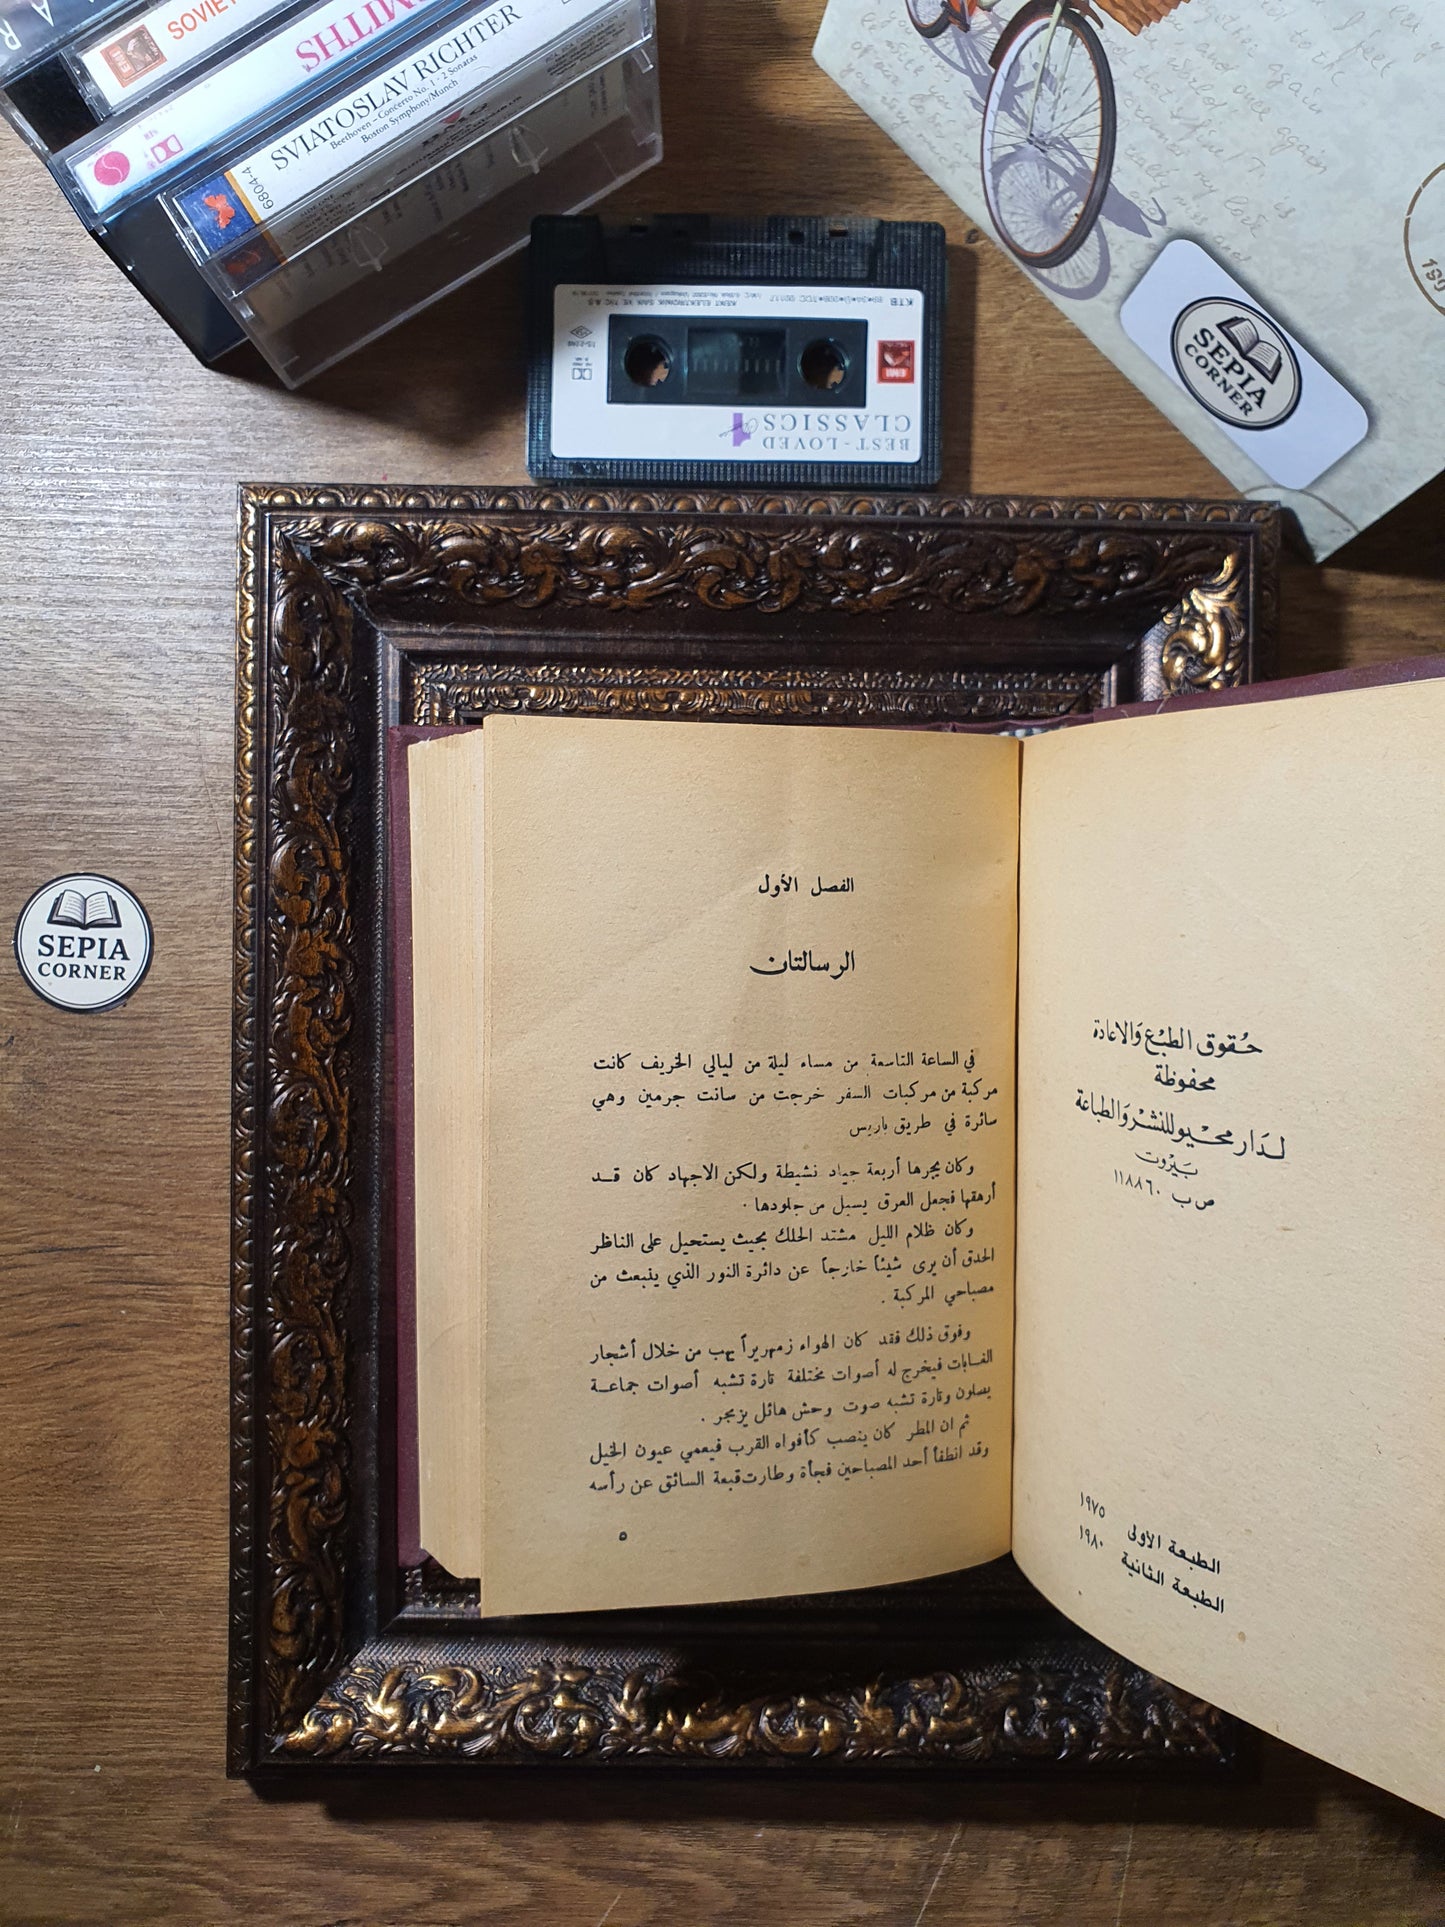 SOVIET
SMITHS
SVIATOSLAV RICHTER
Beethoven - Concerto No. 1 · 2 Sonatas
Boston Symphony/Munch
6804-4
KTB
KENT ELEKTRONIK SAN VE TİC A.Ş
EMI
BEST - LOVED
CLASSICS
4
SEPIA
CORNER
SEPIA
CORNER
حقوق الطبع والاعادة
محفوظة
لدار محيو للنشر والطباعة
بيروت
ص ب ١١٨٨٦٠
الطبعة الأولى ١٩٧٥
الطبعة الثانية ١٩٨٠
الفصل الأول
الرسالتان
في الساعة التاسعة من مساء ليلة من ليالي الخريف كانت
مركبة من مركبات السفر خرجت من سانت جرمين وهي
سائرة في طريق باريس
وكان يجرها أربعة جياد نشيطة ولكن الاجهاد كان قد
أرهقها فجعل العرق يسيل من جلودها .
وكان ظلام الليل مشتد الحلك بحيث يستحيل على الناظر
الحدق أن يرى شيئاً خارجاً عن دائرة النور الذي ينبعث من
مصباحي المركبة .
وفوق ذلك فقد كان الهواء زمهريراً يهب من خلال أشجار
الغابات فيخرج له أصوات مختلفة تارة تشبه أصوات جماعة
يصلون وتارة تشبه صوت وحش هائل يزمجر .
ثم ان المطر كان ينصب كأفواه القرب فيعمي عيون الخيل
وقد انطفأ أحد المصباحين فجأة وطارت قبعة السائق عن رأسه
٥